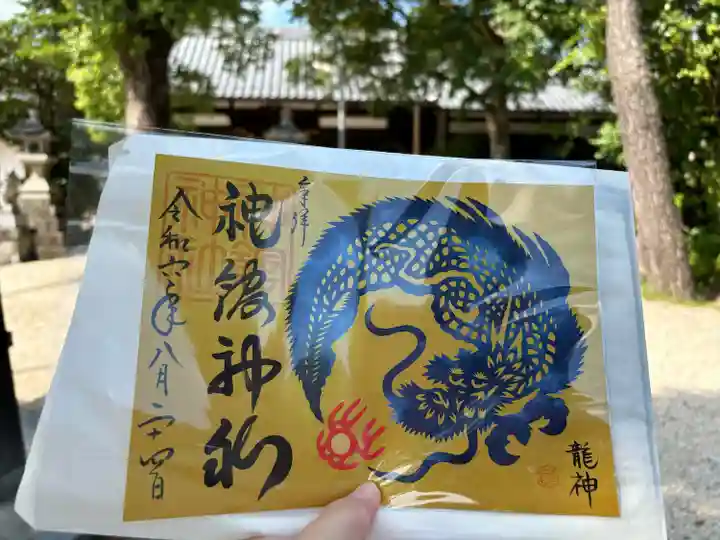 奉拝
神館神社
令和六年八月二十四日
龍神